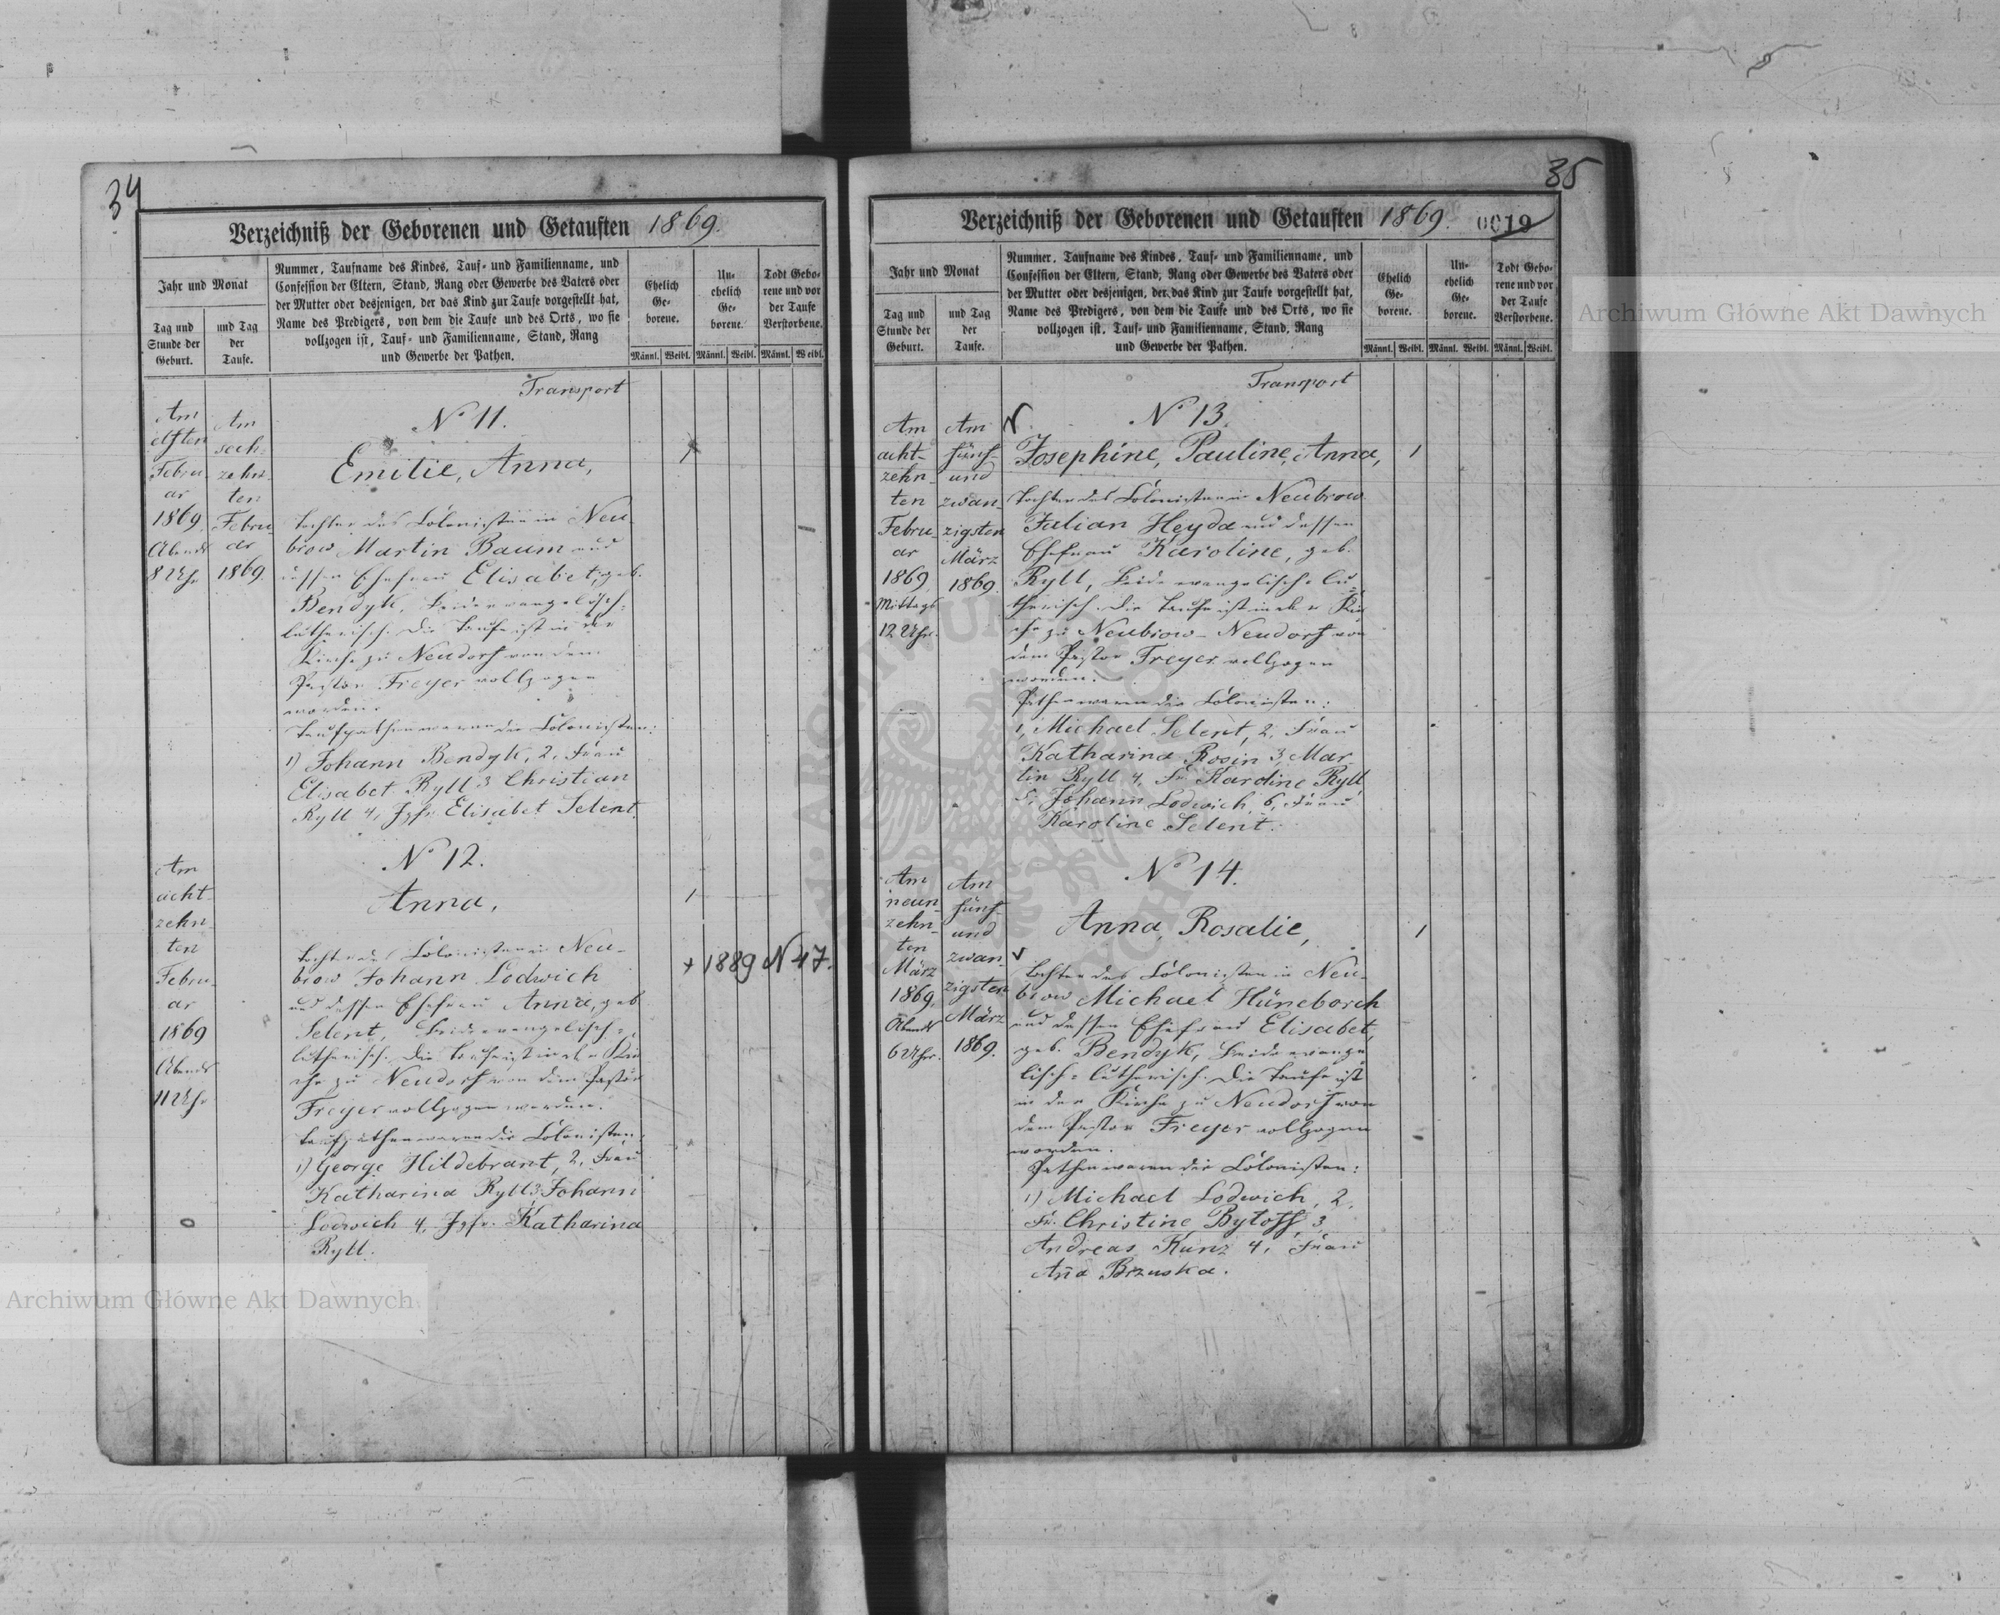 34
Verzeichniß der Geborenen und Getauften 1869.
Jahr und Monat
Tag und
Stunde der
Geburt.
und Tag
der
Taufe.
Nummer, Taufname des Kindes, Tauf- und Familienname, und
Confession der Eltern, Stand, Rang oder Gewerbe des Vaters oder
der Mutter oder desjenigen, der das Kind zur Taufe vorgestellt hat,
Name des Predigers, von dem die Taufe und des Orts, wo sie
vollzogen ist, Tauf- und Familienname, Stand, Rang
und Gewerbe der Pathen.
Ehelich
Ge-
borene.
Un-
ehelich
Ge-
borene.
Todt Gebo-
rene und vor
der Taufe
Verstorbene.
Männl. Weibl. Männl. Weibl. Männl. Weibl.
Transport
Am
elften
Febru-
ar
1869
Abends
8 Uhr
Am
sech-
zehn-
ten
Febru-
ar
1869.
No 11.
Emilie, Anna,
Tochter des Colonisten in Neu-
brow Martin Baum und
dessen Ehefrau Elisabet, geb.
Bendyk, beide evangelisch-
lutherisch. Die Taufe ist in der
Kirche zu Neudorf von dem
Pastor Freyer vollzogen
worden.
Taufpathen waren die Colonisten:
1) Johann Bendyk, 2, Frau
Elisabet Ryll 3 Christian
Ryll 4, Jgfr. Elisabet Selent.
Am
acht-
zehn-
ten
Febru-
ar
1869
Abends
11 Uhr
No 12.
Anna,
1
Tochter des Colonisten in Neu-
brow Johann Lodwich
und dessen Ehefrau Anna, geb.
Selent, beide evangelisch-
lutherisch. Die Taufe ist in der Kir
che zu Neudorf von dem Pastor
Freyer vollzogen worden.
Taufpathen waren die Colonisten:
1) George Hildebrant, 2, Frau
Katharina Ryll 3, Johann
Lodwich 4, Jgfr. Katharina
Ryll.
+ 1889 N 47.
35
Verzeichniß der Geborenen und Getauften 1869.
0019
Jahr und Monat
Tag und
Stunde der
Geburt.
und Tag
der
Taufe.
Nummer, Taufname des Kindes, Tauf- und Familienname, und
Confession der Eltern, Stand, Rang oder Gewerbe des Vaters oder
der Mutter oder desjenigen, der das Kind zur Taufe vorgestellt hat,
Name des Predigers, von dem die Taufe und des Orts, wo sie
vollzogen ist, Tauf- und Familienname, Stand, Rang
und Gewerbe der Pathen.
Ehelich
Ge-
borene.
Un-
ehelich
Ge-
borene.
Todt Gebo-
rene und vor
der Taufe
Verstorbene.
Männl. Weibl. Männl. Weibl. Männl. Weibl.
Transport
Am
acht-
zehn-
ten
Febru-
ar
1869,
Mittags
12 Uhr.
Am
fünf-
und
zwan-
zigsten
März
1869.
No 13.
Josephine, Pauline, Anna,
1
Tochter des Colonisten in Neubrow
Julian Heyda und dessen
Ehefrau Karoline, geb.
Ryll, beide evangelisch-lu-
therisch. Die Taufe ist in der Kir
che zu Neubrow-Neudorf von
dem Pastor Freyer vollzogen
worden.
Pathen waren die Colonisten:
1, Michael Selent, 2, Frau
Katharina Rosin 3, Mar-
tin Ryll 4, Fr. Karoline Ryll
5, Johann Lodwich, 6, Frau
Karoline Selent.
Am
neun-
zehn-
ten
März
1869,
Abends
6 Uhr.
Am
fünf-
und
zwan-
zigsten
März
1869.
No 14.
Anna, Rosalie,
1
Tochter des Colonisten in Neu-
brow Michael Hüneborch
und dessen Ehefrau Elisabet,
geb. Bendyk, beide evange-
lisch-lutherisch. Die Taufe ist
in der Kirche zu Neudorf von
dem Pastor Freyer vollzogen
worden.
Pathen waren die Colonisten:
1) Michael Lodwich, 2,
Fr. Christine Bytoff, 3,
Andreas Kunz 4, Frau
Aña Brzuska.
Archiwum Główne Akt Dawnych
Archiwum Główne Akt Dawnych